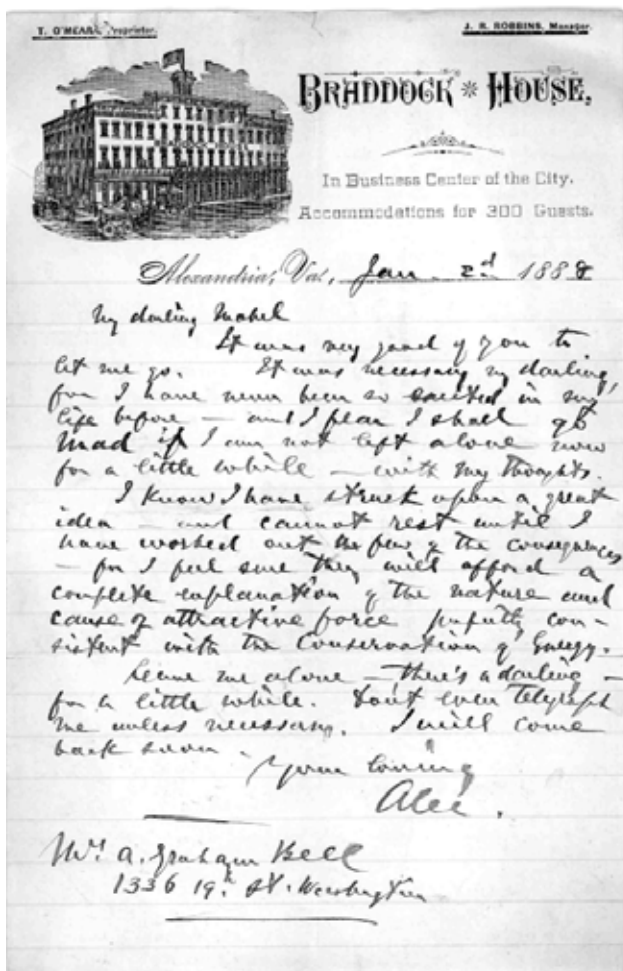 T. O'MEARA, Proprietor.
J. R. ROBBINS, Manager.
BRADDOCK HOUSE,
BRADDOCK HOUSE
In Business Center of the City.
Accommodations for 300 Guests.
Alexandria, Va., Jan. 2d 1888
My darling Mabel
It was very good of you to
let me go. It was necessary my darling,
for I have never been so excited in my
life before — and I fear I shall go
mad if I am not left alone now
for a little while — with my thoughts.
I know I have struck upon a great
idea — and cannot rest until I
have worked out the few of the consequences
— for I feel sure they will afford a
complete explanation of the nature and
cause of attractive force perfectly con-
sistent with the Conservation of Energy.
Leave me alone — there's a darling —
for a little while. Don't even telegraph
me unless necessary. I will come
back soon.
Your loving
Alec.
Mrs. A. Graham Bell
1336 19th St. Washington